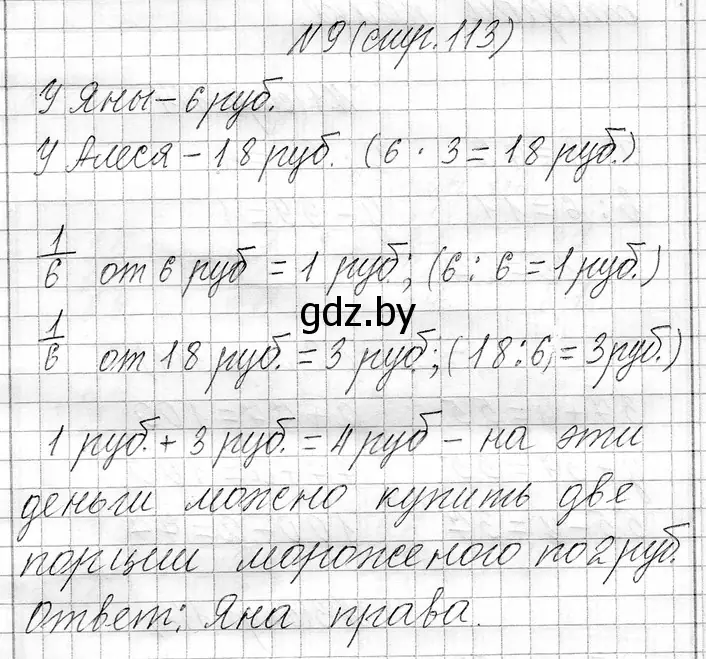 №9 (стр. 113)
У Яны – 6 руб.
У Алеся – 18 руб. (6 · 3 = 18 руб.)
1/6 от 6 руб = 1 руб.; (6 : 6 = 1 руб.)
gdz.by
1/6 от 18 руб. = 3 руб.; (18 : 6 = 3 руб.)
1 руб. + 3 руб. = 4 руб – на эти
деньги можно купить две
порции мороженого по 2 руб.
Ответ: Яна права.